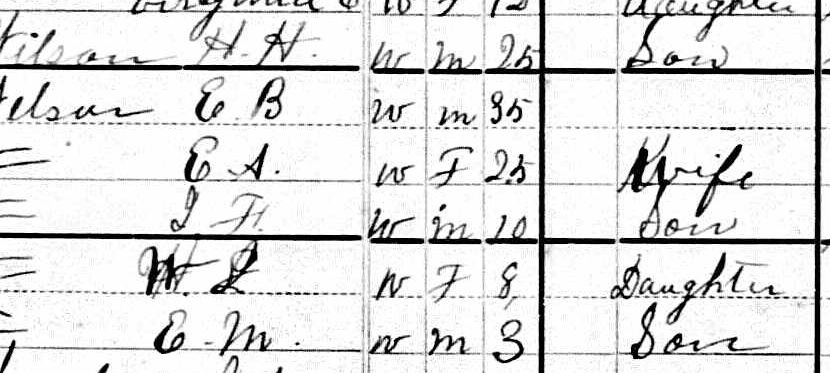 W F 12 Daughter
Wilson H. H. W M 25 Son
Nelson E B W M 35
= E A. W F 25 Wife
= J F. W M 10 Son
= W. L W F 8 Daughter
= E. M. W M 3 Son